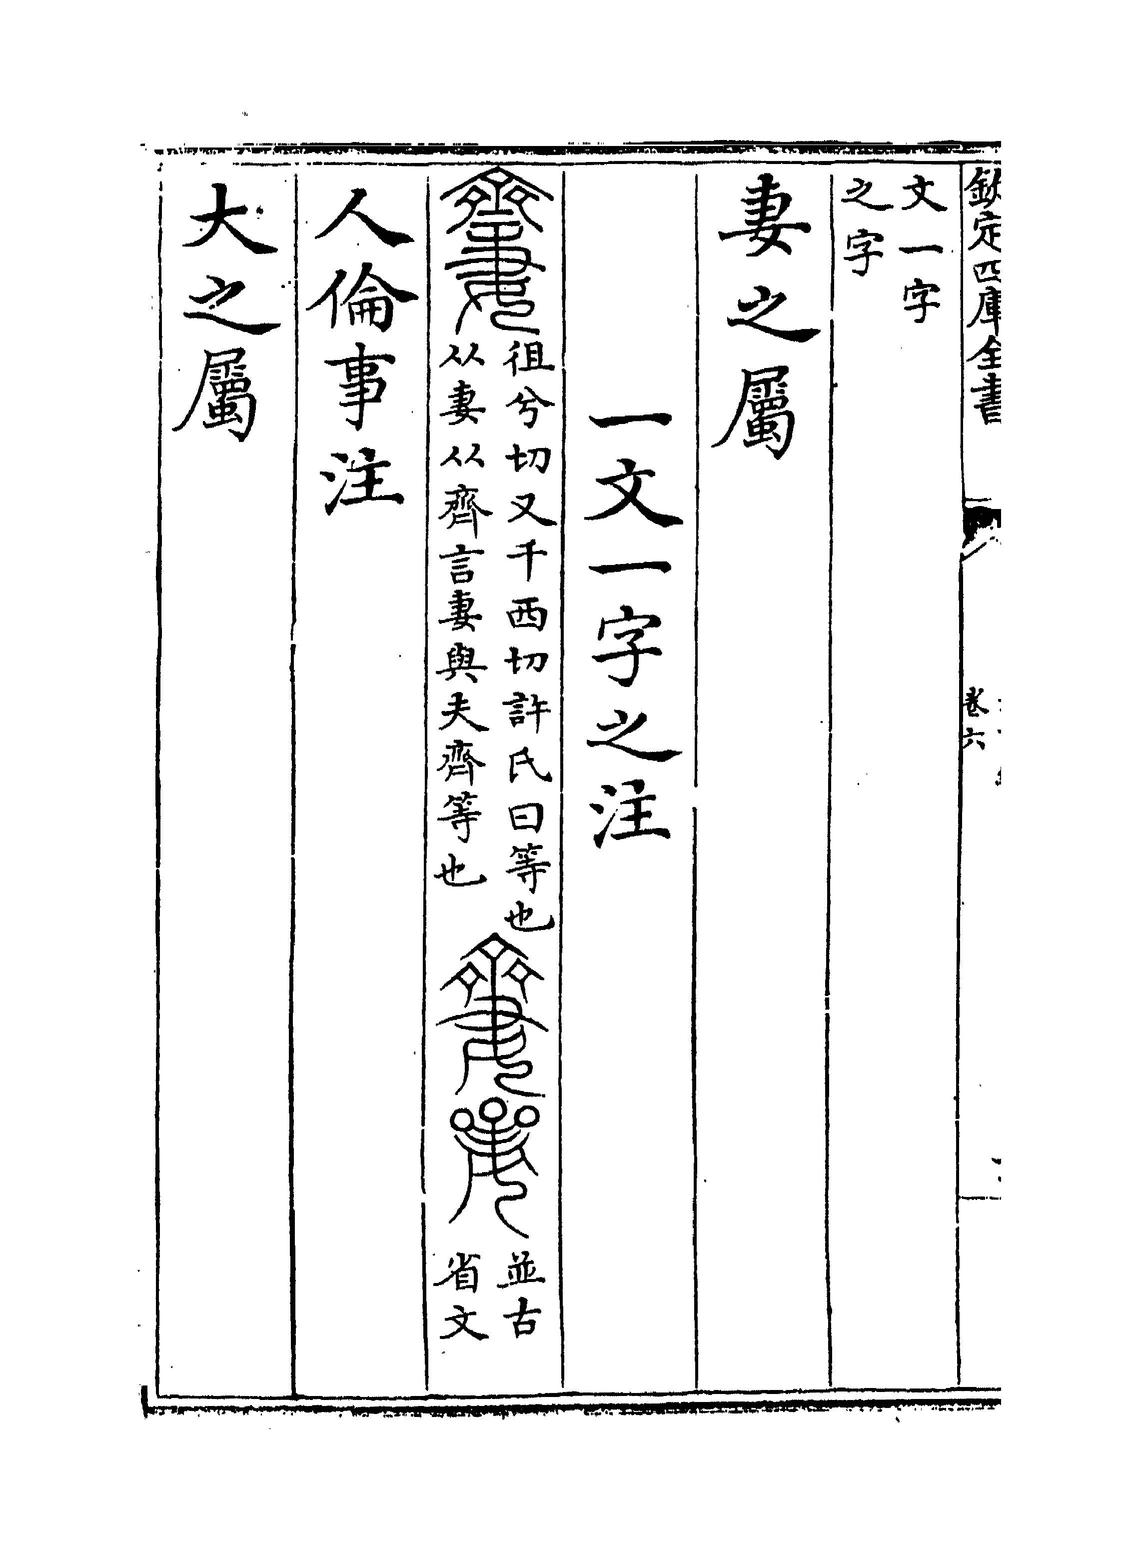 欽定四庫全書
卷六
文一字
之字
妻之屬
一文一字之注
徂兮切又千西切許氏曰等也
从妻从齊言妻與夫齊等也
並古
省文
人倫事注
大之屬